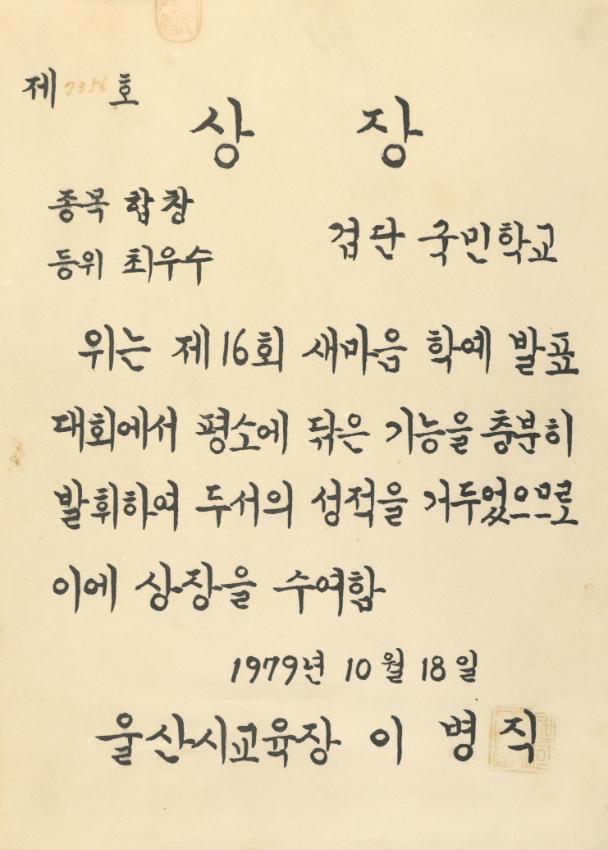 제 7356 호
상 장
종목 합창
등위 최우수
검단 국민학교
위는 제16회 새마음 학예 발표
대회에서 평소에 닦은 기능을 충분히
발휘하여 두서의 성적을 거두었으므로
이에 상장을 수여함
1979년 10월 18일
울산시교육장 이 병 직